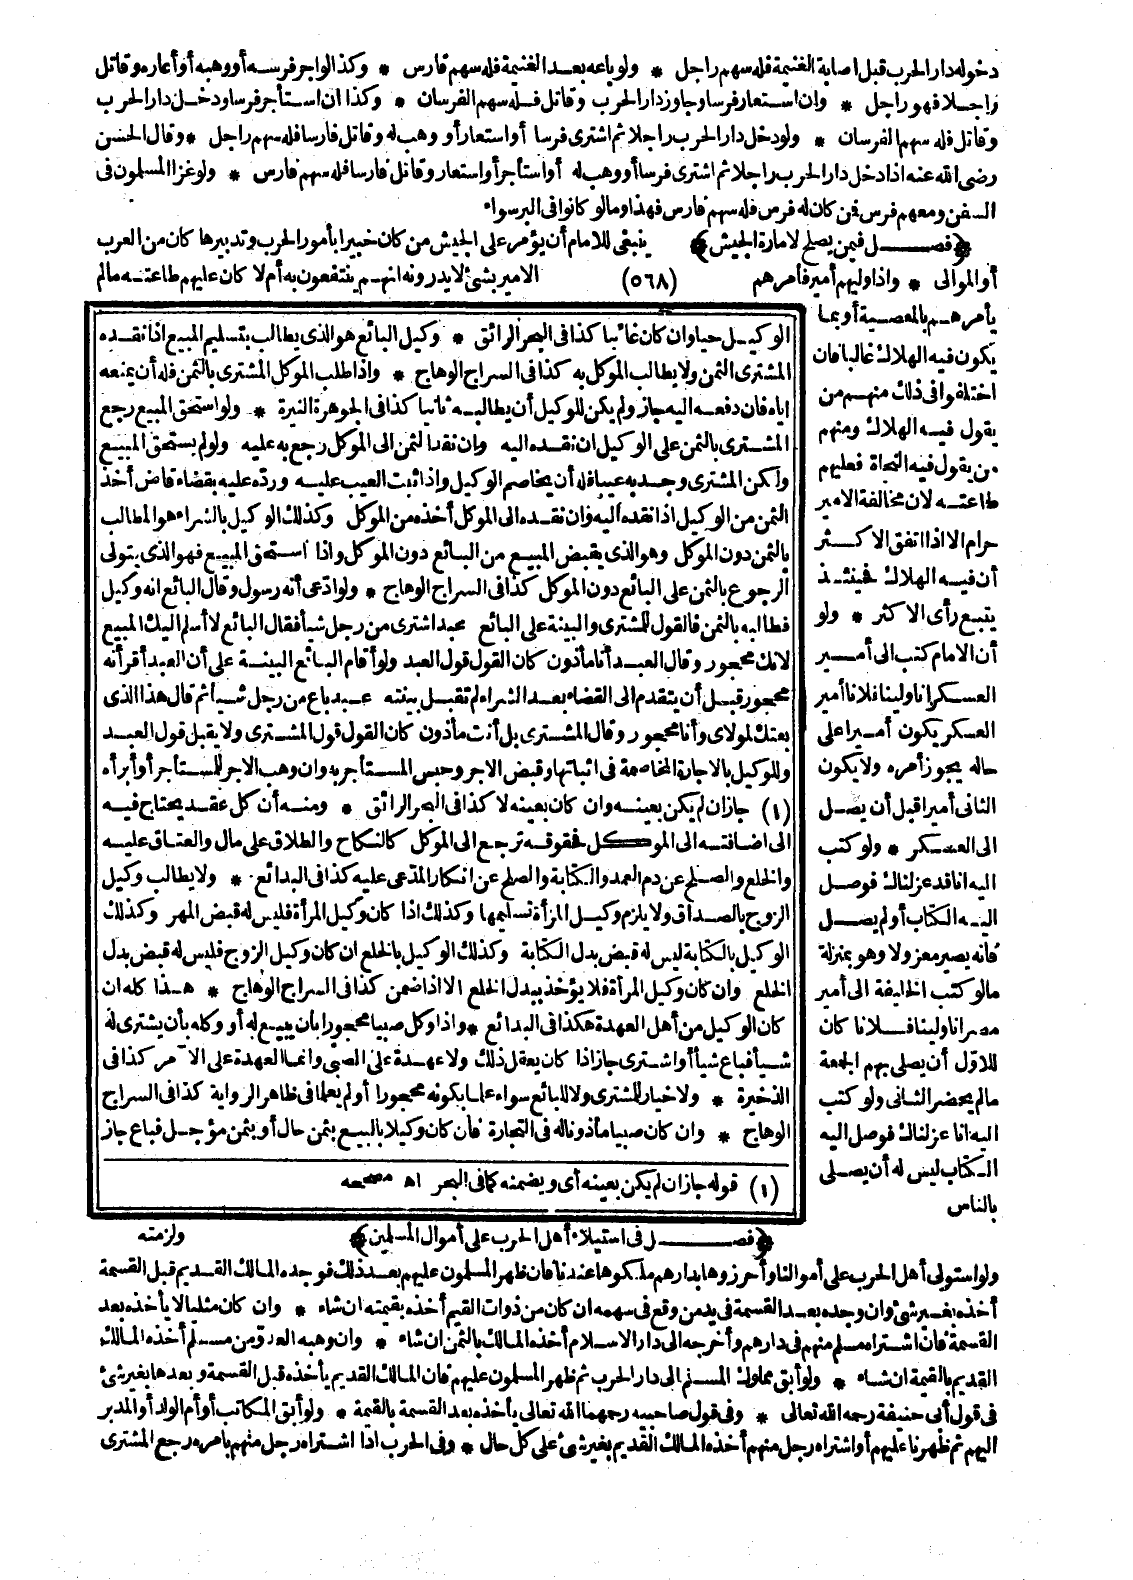 دخوله دار الحرب قبل اصابة الغنيمة فله سهم راجل * ولو باعه بعد الغنيمة فله سهم فارس * وكذا لو اجر فرسه أو وهبه أو أعاره وقاتل
راجلا فهو راجل * وان استعار فرسا وجاوز دار الحرب وقاتل فله سهم الفرسان * وكذا ان استأجر فرسا ودخل دار الحرب
وقاتل فله سهم الفرسان * ولو دخل دار الحرب راجلا ثم اشترى فرسا أو استعار أو وهب له وقاتل فارسا فله سهم راجل * وقال الحسن
رضى الله عنه اذا دخل دار الحرب راجلا ثم اشترى فرسا أو وهب له أو استأجر أو استعار وقاتل فارسا فله سهم فارس * ولو غزا المسلمون فى
السفن ومعهم فرس فمن كان له فرس فله سهم فارس فهذا وما لو كانوا فى البر سواء
﴿فصل فيمن يصلح لامارة الجيش﴾ ينبغى للامام أن يؤمر على الجيش من كان خبيرا بأمور الحرب وتدبيرها كان من العرب
أو الموالى * واذا وليهم أمير فأمرهم (٥٦٨) الامير بشئ لا يدرون انهم ينتفعون به أم لا كان عليهم طاعته مالم
يأمرهم بالمعصية أو بما
يكون فيه الهلاك غالبا فان
اختلفوا فى ذلك منهم من
يقول فيه الهلاك ومنهم
من يقول فيه النجاة فعليهم
طاعته لان مخالفة الامير
حرام الا اذا اتفق الاكثر
أن فيه الهلاك فحينئذ
يتبع رأى الاكثر * ولو
أن الامام كتب الى أمير
العسكر انا ولينا فلانا أمير
العسكر يكون أميرا على
حاله يجوز أمره ولا يكون
الثانى أميرا قبل أن يصل
الى العسكر * ولو كتب
اليه انا قد عزلناك فوصل
اليه الكتاب أو لم يصل
فانه يصير معزولا وهو بمنزلة
مالو كتب الخليفة الى أمير
مصر انا ولينا فلانا كان
للاول أن يصلى بهم الجمعة
مالم يحضر الثانى ولو كتب
اليه انا عزلناك فوصل اليه
الكتاب ليس له أن يصلى
بالناس
الوكيل حيا وان كان غائبا كذا فى البحر الرائق * وكيل البائع هو الذى يطالب بتسليم المبيع اذا نقده
المشترى الثمن ولا يطالب الموكل به كذا فى السراج الوهاج * واذا طلب الموكل المشترى بالثمن فله أن يمنعه
اياه فان دفعه اليه جاز ولم يكن للوكيل أن يطالبه ثانيا كذا فى الجوهرة النيرة * ولو استحق المبيع رجع
المشترى بالثمن على الوكيل ان نقده اليه وان نقد الثمن الى الموكل رجع به عليه ولو لم يستحق المبيع
ولكن المشترى وجد به عيبا فله أن يخاصم الوكيل واذا ثبت العيب عليه ورده عليه بقضاء قاض أخذ
الثمن من الوكيل اذا نقده اليه وان نقده الى الموكل أخذه من الموكل وكذلك الوكيل بالشراء هو المطالب
بالثمن دون الموكل وهو الذى يقبض المبيع من البائع دون الموكل واذا استحق المبيع فهو الذى يتولى
الرجوع بالثمن على البائع دون الموكل كذا فى السراج الوهاج * ولو ادعى أنه رسول وقال البائع انه وكيل
فطالبه بالثمن فالقول للمشترى والبينة على البائع عبد اشترى من رجل شيأ فقال البائع لا أسلم اليك المبيع
لانك محجور وقال العبد أنا مأذون كان القول قول العبد ولو أقام البائع البينة على أن العبد أقر أنه
محجور قبل أن يتقدم الى القضاء بعد الشراء لم تقبل بينته عبد باع من رجل شيأ ثم قال هذا الذى
بعتك لمولاى وأنا محجور وقال المشترى بل أنت مأذون كان القول قول المشترى ولا يقبل قول العبد
وللوكيل بالاجارة المخاصمة فى اثباتها وقبض الاجر وحبس المستأجر به وان وهب الاجر للمستأجر أو أبرأه
(١) جاز ان لم يكن بعينه وان كان بعينه لا كذا فى البحر الرائق * ومنه أن كل عقد يحتاج فيه
الى اضافته الى الموكل فحقوقه ترجع الى الموكل كالنكاح والطلاق على مال والعتاق عليه
والخلع والصلح عن دم العمد والكتابة والصلح عن انكار المدعى عليه كذا فى البدائع * ولا يطالب وكيل
الزوج بالصداق ولا يلزم وكيل المرأة تسليمها وكذلك اذا كان وكيل المرأة فليس له قبض المهر وكذلك
الوكيل بالكتابة ليس له قبض بدل الكتابة وكذلك الوكيل بالخلع ان كان وكيل الزوج فليس له قبض بدل
الخلع وان كان وكيل المرأة فلا يؤخذ ببدل الخلع الا اذا ضمن كذا فى السراج الوهاج * هذا كله ان
كان الوكيل من أهل العهدة هكذا فى البدائع * واذا وكل صبيا محجورا بأن يبيع له أو وكله بأن يشترى له
شيأ فباع شيأ أو اشترى جاز اذا كان يعقل ذلك ولا عهدة على الصبى وانما العهدة على الآمر كذا فى
الذخيرة * ولا خيار للمشترى ولا للبائع سواء علما بكونه محجورا أو لم يعلما فى ظاهر الرواية كذا فى السراج
الوهاج * وان كان صبيا مأذونا له فى التجارة فان كان وكيلا بالبيع بثمن حال أو بثمن مؤجل فباع جاز
(١) قوله جاز ان لم يكن بعينه أى ويضمنه كما فى البحر اه مصححه
﴿فصل فى استيلاء أهل الحرب على أموال المسلمين﴾ ولزمته
ولو استولى أهل الحرب على أموالنا وأحرزوها بدارهم ملكوها عندنا فان ظهر المسلمون عليهم بعد ذلك فوجده المالك القديم قبل القسمة
أخذه بغير شئ وان وجده بعد القسمة فى يد من وقع فى سهمه ان كان من ذوات القيم أخذه بقيمته ان شاء * وان كان مثليا لا يأخذه بعد
القسمة فان اشتراه مسلم منهم فى دارهم وأخرجه الى دار الاسلام أخذه المالك بالثمن ان شاء * وان وهبه العدو من مسلم أخذه المالك
القديم بالقيمة ان شاء * ولو أبق مملوك المسلم الى دار الحرب ثم ظهر المسلمون عليهم فان المالك القديم يأخذه قبل القسمة وبعدها بغير شئ
فى قول أبى حنيفة رحمه الله تعالى * وفى قول صاحبيه رحمهما الله تعالى يأخذه بعد القسمة بالقيمة * ولو أبق المكاتب أو أم الولد أو المدبر
اليهم ثم ظهرنا عليهم أو اشتراه رجل منهم أخذه المالك القديم بغير شئ على كل حال * وفى الحر اذا اشتراه رجل منهم بأمره رجع المشترى